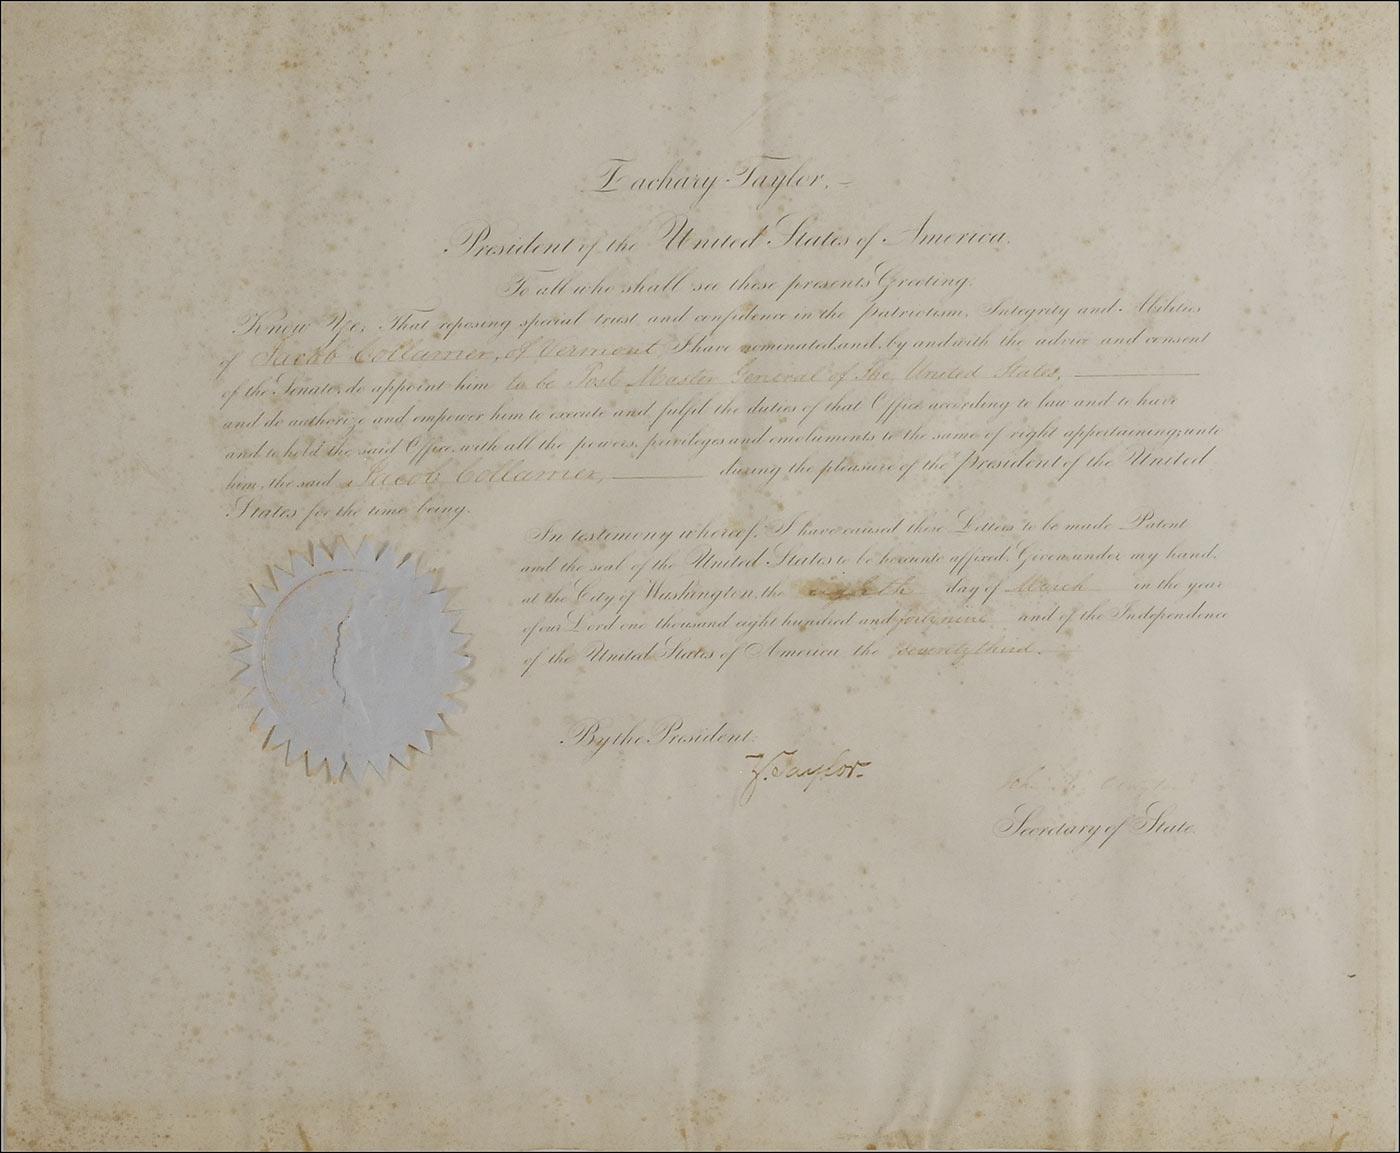 Zachary Taylor,
President of the United States of America.
To all who shall see these presents Greeting:
Know Ye, That reposing special trust and confidence in the Patriotism, Integrity and Abilities
of Jacob Collamer, of Vermont, I have nominated, and, by and with the advice and consent
of the Senate, do appoint him to be Post Master General of the United States,
and do authorize and empower him to execute and fulfil the duties of that Office according to law and to have
and to hold the said Office, with all the powers, privileges and emoluments to the same of right appertaining; unto
him, the said Jacob Collamer, during the pleasure of the President of the United
States for the time being.
In testimony whereof, I have caused these Letters to be made Patent
and the seal of the United States to be hereunto affixed. Given under my hand,
at the City of Washington, the eighth day of March in the year
of our Lord one thousand eight hundred and forty nine and of the Independence
of the United States of America the seventy third.
By the President:
Z. Taylor.
Secretary of State.